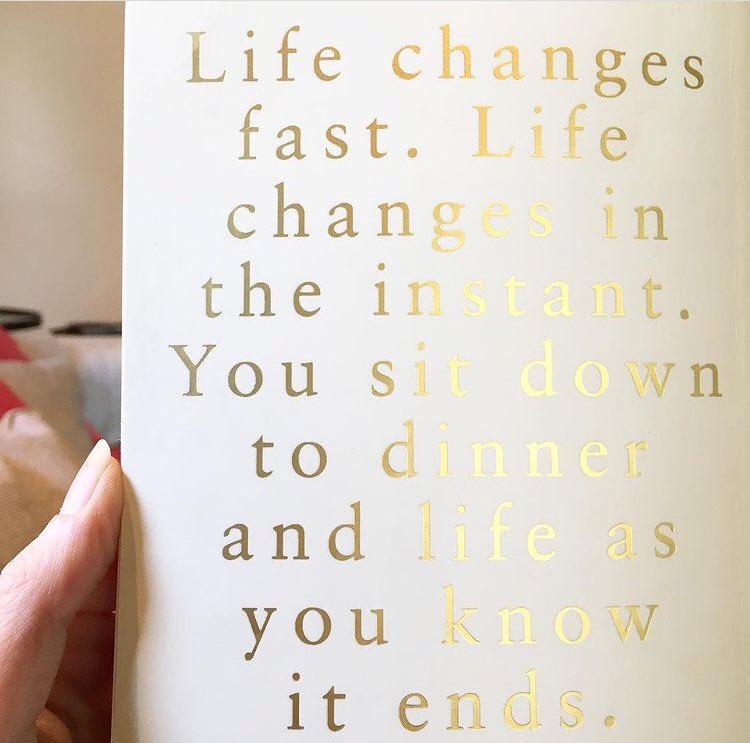 Life changes
fast. Life
changes in
the instant.
You sit down
to dinner
and life as
you know
it ends.